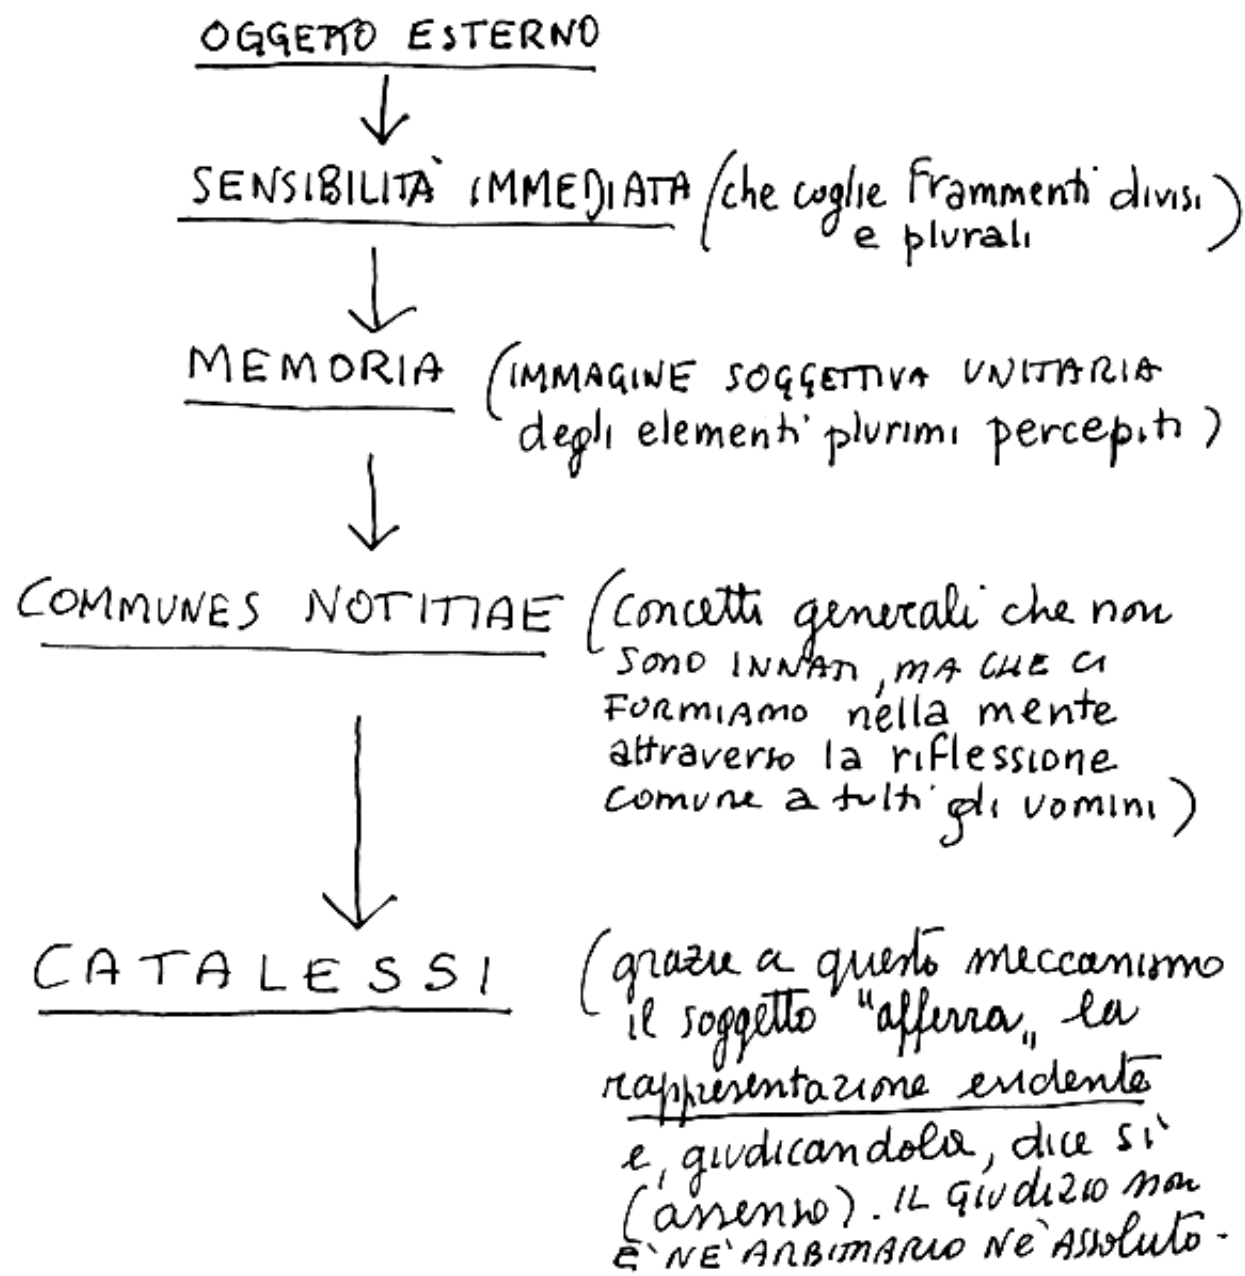 OGGETTO ESTERNO
SENSIBILITÀ IMMEDIATA (che coglie frammenti divisi
e plurali)
MEMORIA (IMMAGINE SOGGETTIVA UNITARIA
degli elementi plurimi percepiti)
COMMUNES NOTITIAE (concetti generali che non
SONO INNATI, MA CHE CI
FORMIAMO nella mente
attraverso la riflessione
comune a tutti gli uomini)
CATALESSI (grazie a questo meccanismo
il soggetto "afferra" la
rappresentazione evidente
e, giudicandola, dice sì
(assenso). IL GIUDIZIO non
È NÈ ARBITRARIO NÈ ASSoluto.